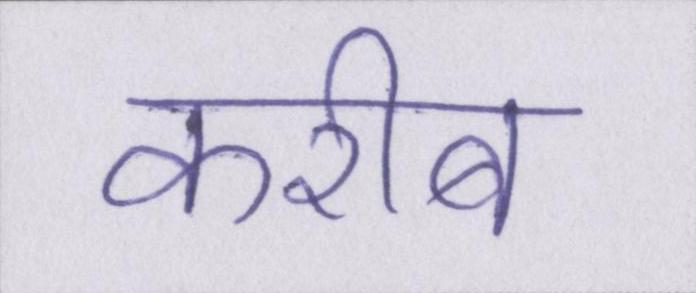 करीब